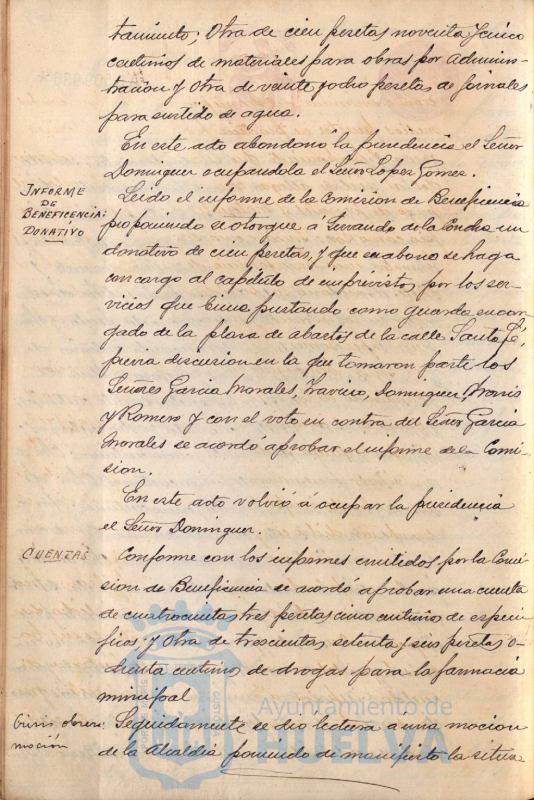 tamiento; Otra de cien pesetas noventa y cinco
centimos de materiales para obras por Adminis-
tracion y Otra de veinte y ocho pesetas de jornales
para surtido de agua.
En este acto abandonó la presidencia el Señor
Dominguez ocupandola el Señor Lopez Gomez.
INFORME
DE
BENEFICENCIA:
DONATIVO
Leido el informe de la Comision de Beneficencia
proponiendo se otorgue a Servando de la Concha un
donativo de cien pesetas, y que su abono se haga
con cargo al capitulo de imprevistos por los ser-
vicios que viene prestando como guarda encar-
gado de la plaza de abastos de la calle Santa Fé,
previa discusion en la que tomaron parte los
Señores Garcia Morales, Dominguez,
y Romero y con el voto en contra del Señor Garcia
Morales se acordó aprobar el informe de la Comi-
sion.
En este acto volvió á ocupar la presidencia
el Señor Dominguez.
CUENTAS
Conforme con los informes emitidos por la Comi-
sion de Beneficencia se acordó aprobar una cuenta
de cuatrocientas tres pesetas cinco centimos de especi-
ficos y Otra de trescientas setenta y seis pesetas o-
chenta centimos de drogas para la farmacia
municipal
Crisis obrera:
moción
Seguidamente se dio lectura a una mocion
de la Alcaldia poniendo de manifiesto la situa-
Ayuntamiento de
HUELVA